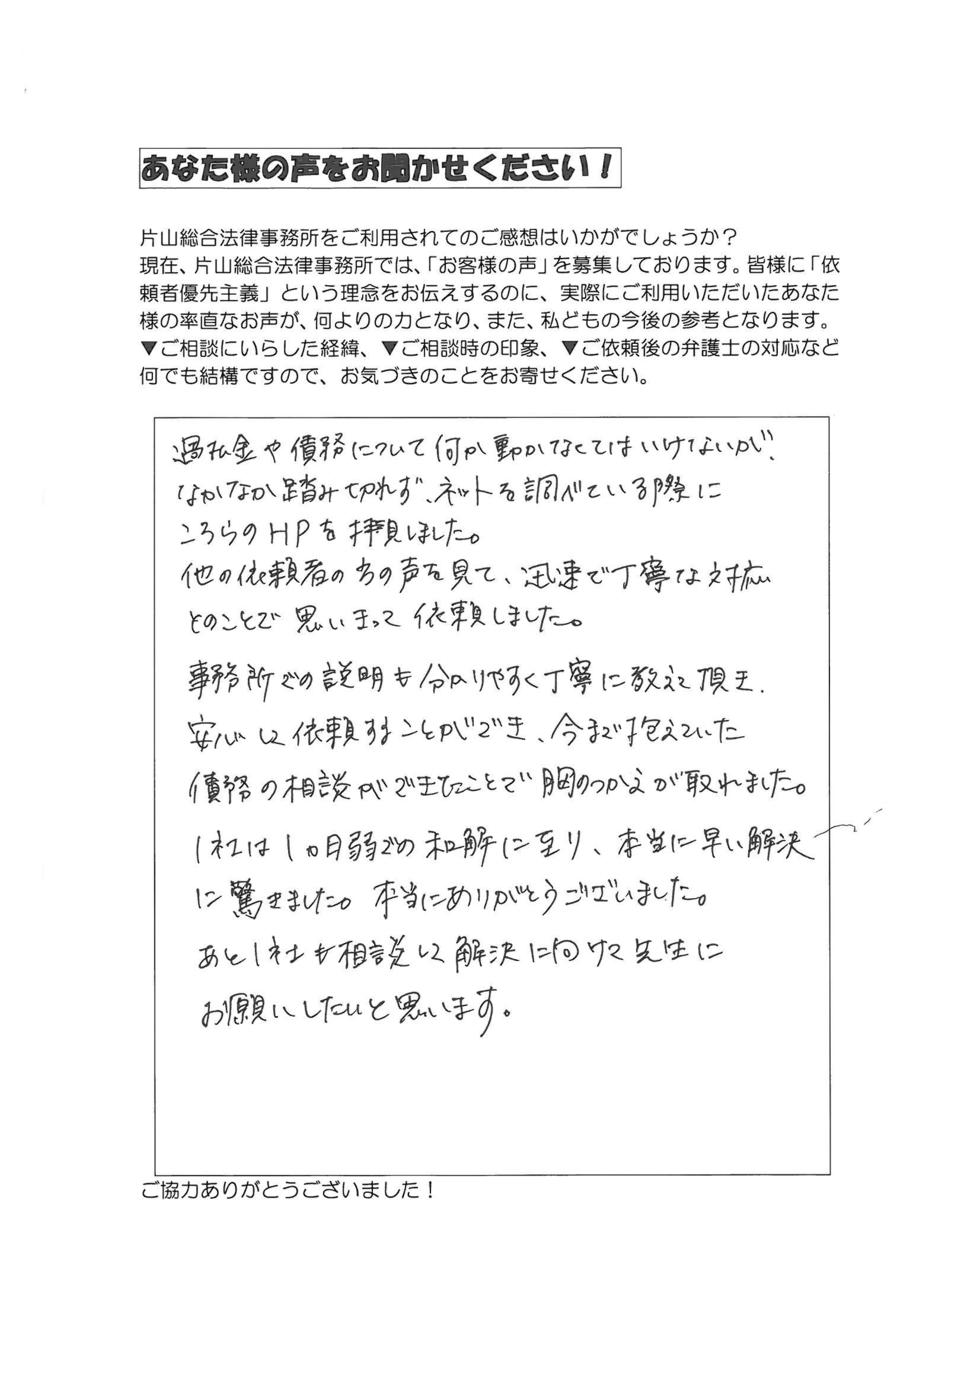 あなた様の声をお聞かせください！
片山総合法律事務所をご利用されてのご感想はいかがでしょうか？
現在、片山総合法律事務所では、「お客様の声」を募集しております。皆様に「依
頼者優先主義」という理念をお伝えするのに、実際にご利用いただいたあなた
様の率直なお声が、何よりの力となり、また、私どもの今後の参考となります。
▼ご相談にいらした経緯、▼ご相談時の印象、▼ご依頼後の弁護士の対応など
何でも結構ですので、お気づきのことをお寄せください。
過払金や債務について何か動かなくてはいけないが、
なかなか踏み切れず、ネットを調べている際に
こちらのHPを拝見しました。
他の依頼者の方の声を見て、迅速で丁寧な対応
とのことで思いきって依頼しました。
事務所での説明も分かりやすく丁寧に教えて頂き、
安心して依頼することができ、今まで抱えていた
債務の相談ができたことで胸のつかえが取れました。
1社は1ヵ月弱での和解に至り、本当に早い解決
に驚きました。本当にありがとうございました。
あと1社も相談して解決に向けて先生に
お願いしたいと思います。
ご協力ありがとうございました！